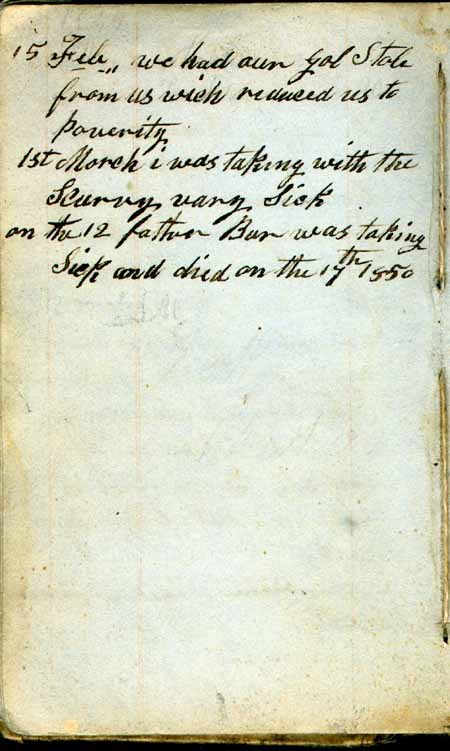 15 Feb,, we had our gol Stole
from us wich reduced us to
poverity
1st March i was taking with the
Scurvy vary Sick
on the 12 father Bur was taking
Sick and died on the 17th 1850